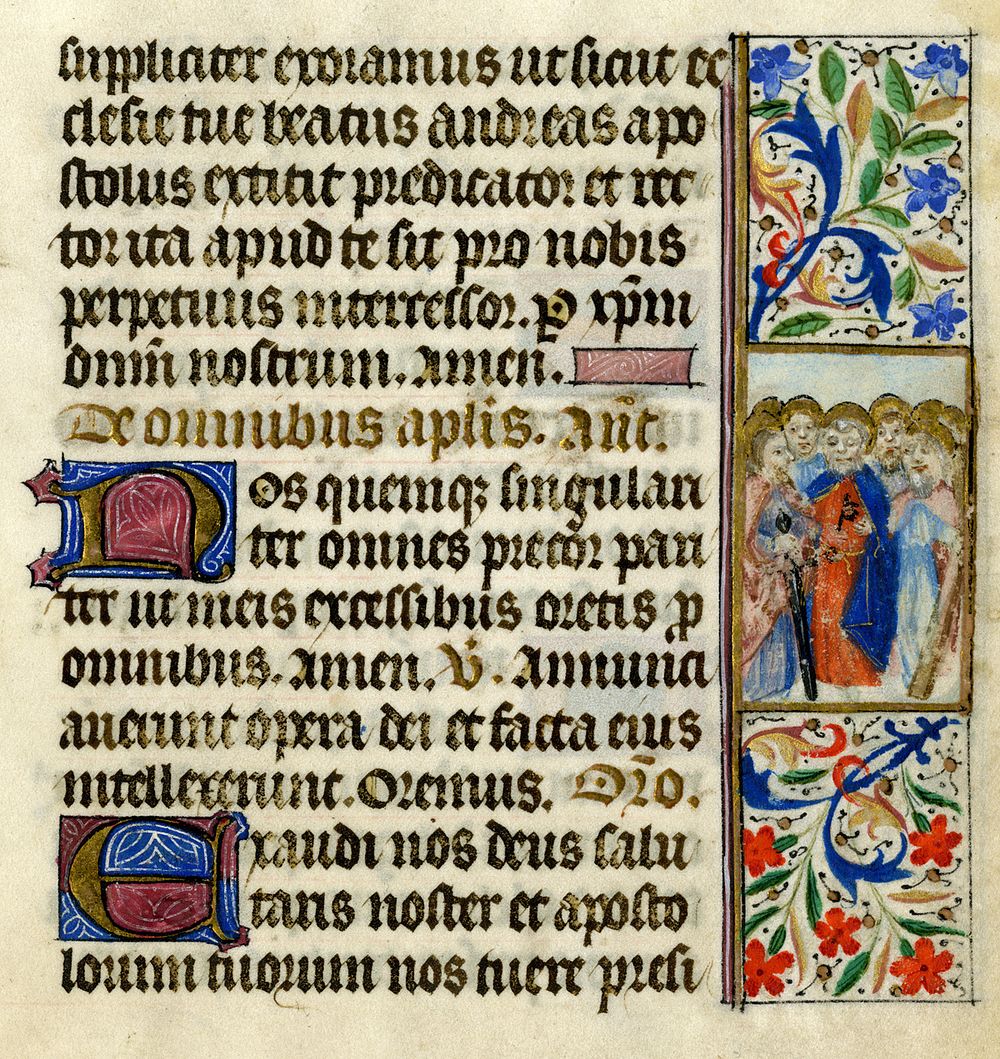 suppliciter exoramus ut sicut ec
clesie tue beatus andreas apo
stolus extitit predicator et rec
tor ita apud te sit pro nobis
perpetuus intercessor. ꝑ xp̄m
dn̄m nostrum. Amen.
De omnibus apl̄is. Ant̄.
Nos quemqꝫ singulari
ter omnes precor pari
ter ut meis excessibus oretis ꝓ
omnibus. Amen. V̄. Annunci
auerunt opera dei et facta eius
intellexerunt. Oremus. Or̄o.
Exaudi nos deus salu
taris noster et aposto
lorum tuorum nos tuere presi